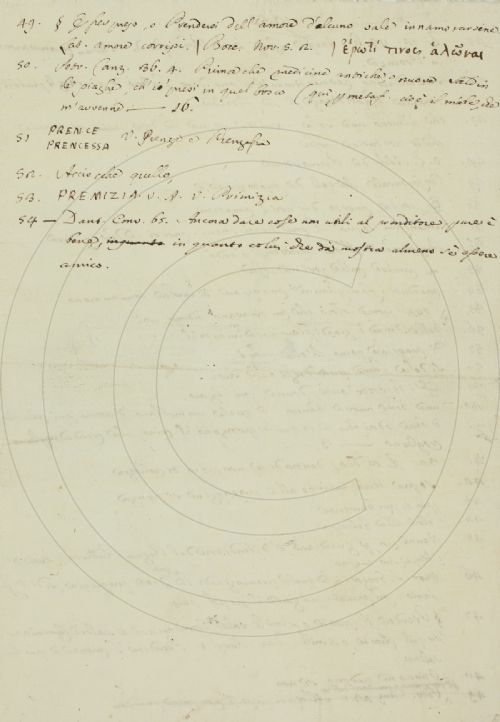 49. § Esser preso, o Prendersi dell'amore d'alcuno vale innamorarsene
Lat. amore corripi. | Bocc. Nov. 5. 2. | ἔρωτί τινος ἁλῶναι
50. Petr. Canz. 36. 4. Prima che medicine antiche o nuove saldin
le piaghe ch'io presi in quel bosco (qui p metaf. cioè il male, che
m'avvenne — 16
51 PRENCE
PRENCESSA V. Prenze e
52. Acciocchè quello,
53. PREMIZIA V. A. V. Primizia
54 — Dant. Conv. 65. Ancora dare cose non utili al prenditore, pure è
bene, inquanto in quanto colui che dà mostra almeno sè essere
amico.